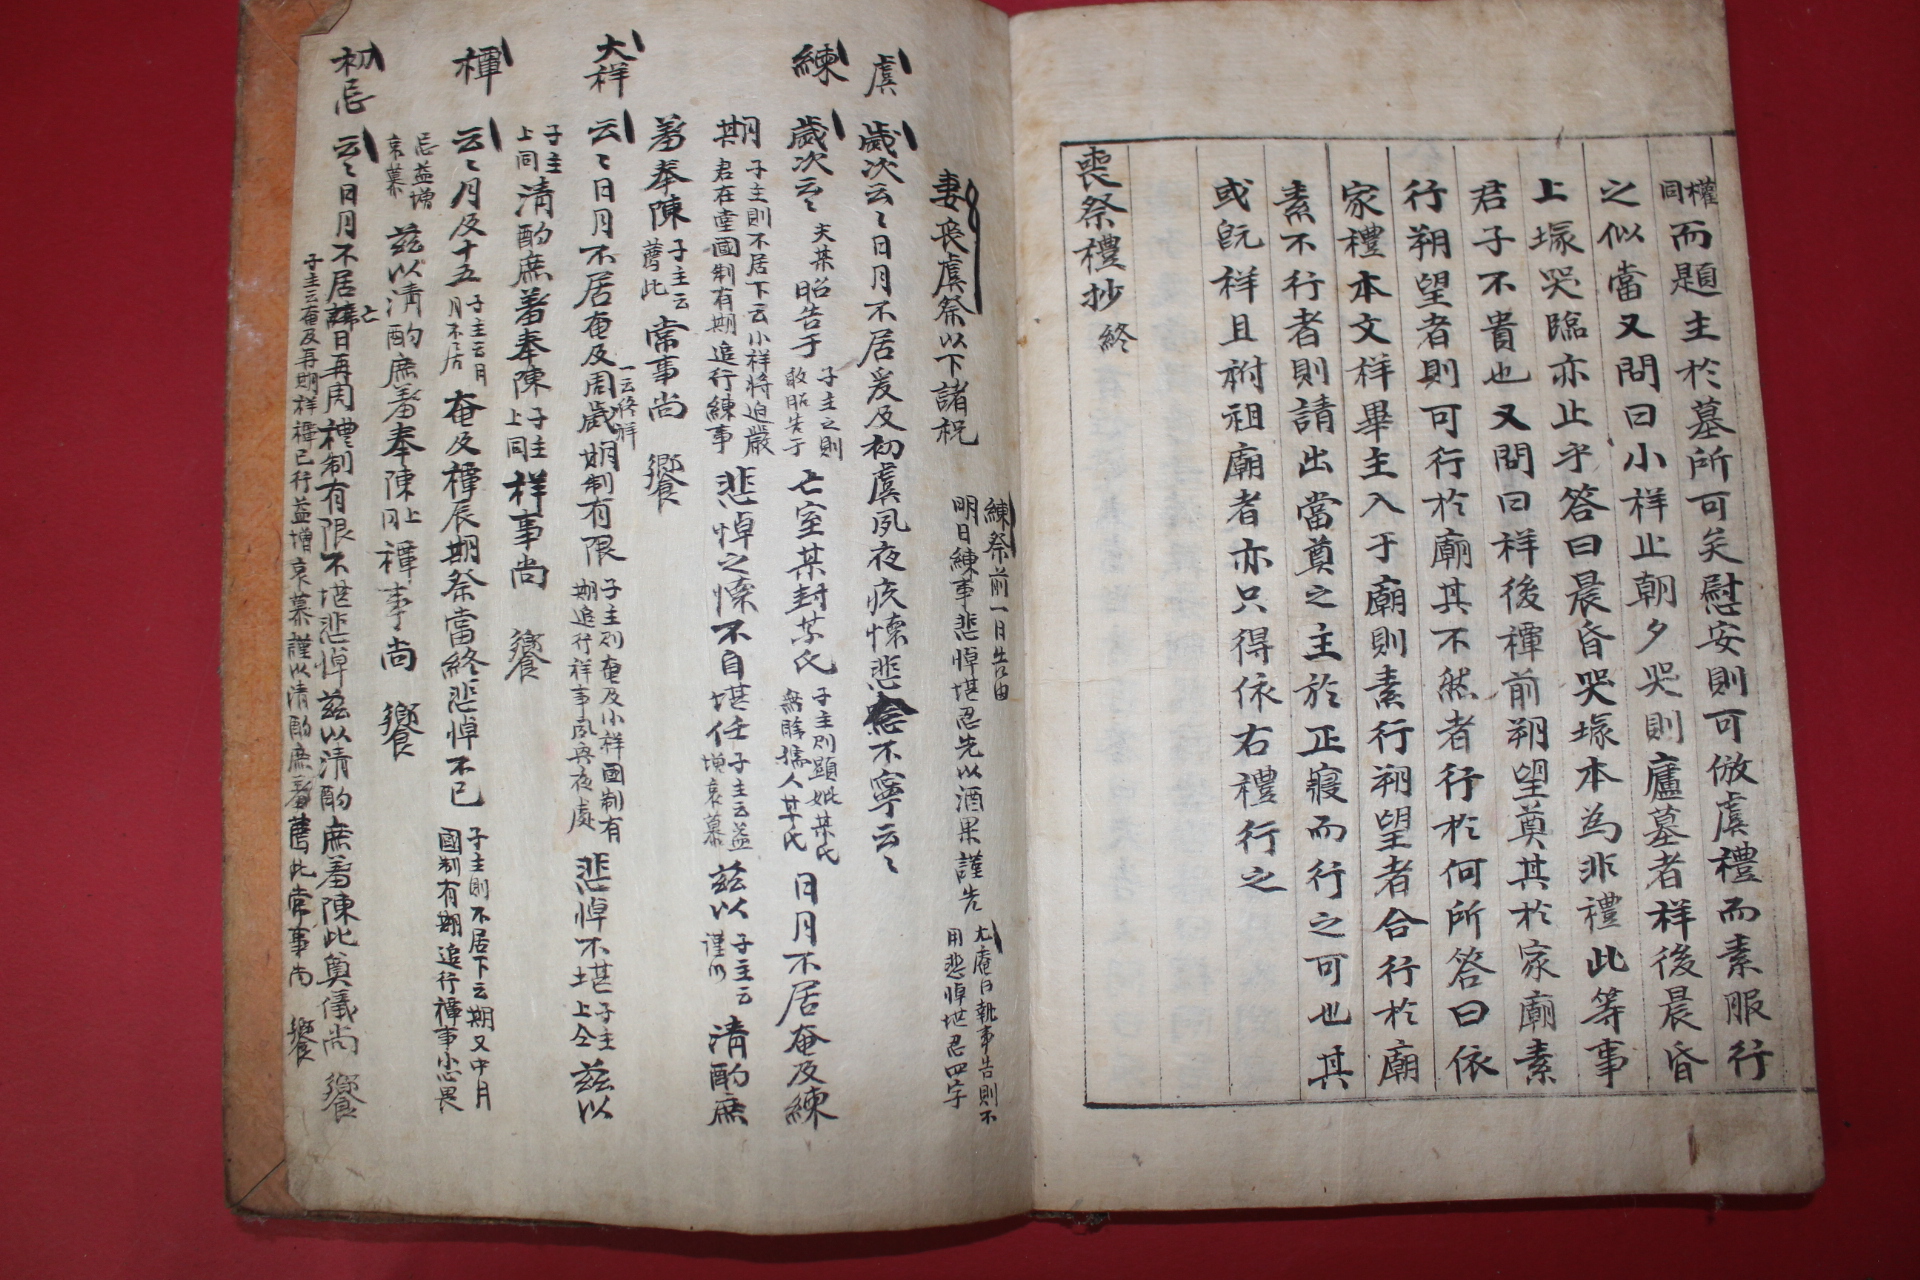 權同而題主於墓所可矣慰安則可倣虞禮而素服行
之似當又問曰小祥止朝夕哭則廬墓者祥後晨昏
上塚哭臨亦止乎答曰晨昏哭塚本為非禮此等事
君子不貴也又問曰祥後禫前朔望奠其於家廟素
行朔望者則可行於廟其不然者行於何所答曰依
家禮本文祥畢主入于廟則素行朔望者合行於廟
素不行者則請出當奠之主於正寢而行之可也其
或旣祥且祔祖廟者亦只得依右禮行之
喪祭禮抄 終
妻喪虞祭以下諸祝
練祭前一日告由
明日練事悲悼堪忍先以酒果謹先
尤庵曰執事告則不
用悲悼堪忍四字
虞 歲次云〻日月不居爰及初虞夙夜疚懷悲不寧云〻
練 歲次云〻 夫某昭告于 子主之則敢昭告于 亡室某封某氏 子主則顯妣某氏 孺人某氏 日月不居奄及練
期 子主則不居下云小祥將迫嚴君在堂國制有期追行練事 悲悼之懷不自堪任 子主云益增哀慕 玆以 子主云謹以 淸酌庶
羞奉陳 子主云薦此 常事尚 饗
大祥 云〻日月不居奄及周歲 一云終祥 期制有限 子主則奄及小祥國制有期追行祥事夙興夜處 悲悼不堪 子主上仝 玆以
子主上同 淸酌庶羞奉陳 子主上同 祥事尚 饗
禫 云〻月及十五 子主云日月不居 奄及禫辰期祭當終悲悼不已 子主則不居下云期又中月國制有期追行禫事小心畏
忌益增哀慕 玆以淸酌庶羞奉陳 上同 禫事尚 饗
初忌 云〻日月不居亡日再周禮制有限不堪悲悼玆以淸酌庶羞陳此奠儀尚 饗
子主云奄及再期祥禫已行益增哀慕謹以淸酌庶羞薦此常事尚 饗